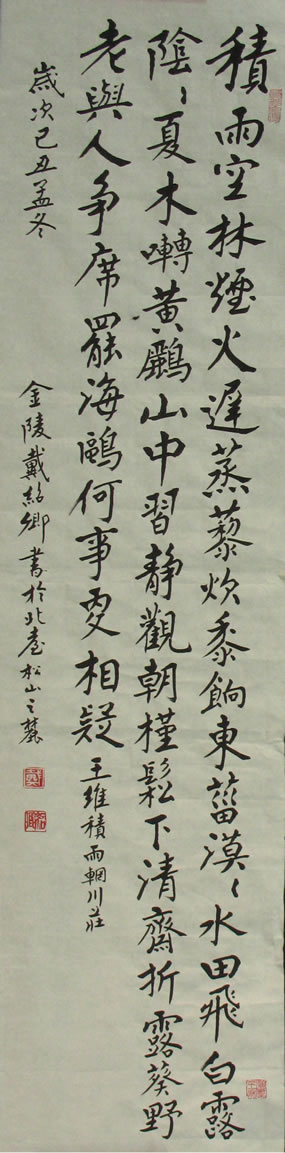 積雨空林煙火遲蒸藜炊黍餉東菑漠〻水田飛白露
陰〻夏木囀黃鸝山中習靜觀朝槿鬆下清齋折露葵野
老與人爭席罷海鷗何事更相疑 王維積雨輞川莊
歲次己丑孟冬 金陵戴紹卿書於北臺松山之麓